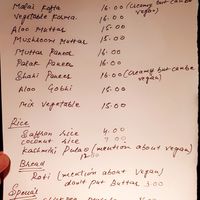 Malai Kofta 16.00 (Creamy but can be vegan)
Vegetable Korma 16.00
Aloo Muttar 15.00
Mushroom Muttar 15.00
Muttar Paneer 16.00
Palak Paneer 16.00
Shahi Paneer 16.00 (Creamy but can be vegan)
Aloo Gobhi 15.00
Mix Vegetable 15.00
Rice
Saffron rice 4.00
Coconut rice
Kashmiri Pulao (mention about vegan)
Bread
Roti (mention about Vegan)
don't put Butter 3.00
Special